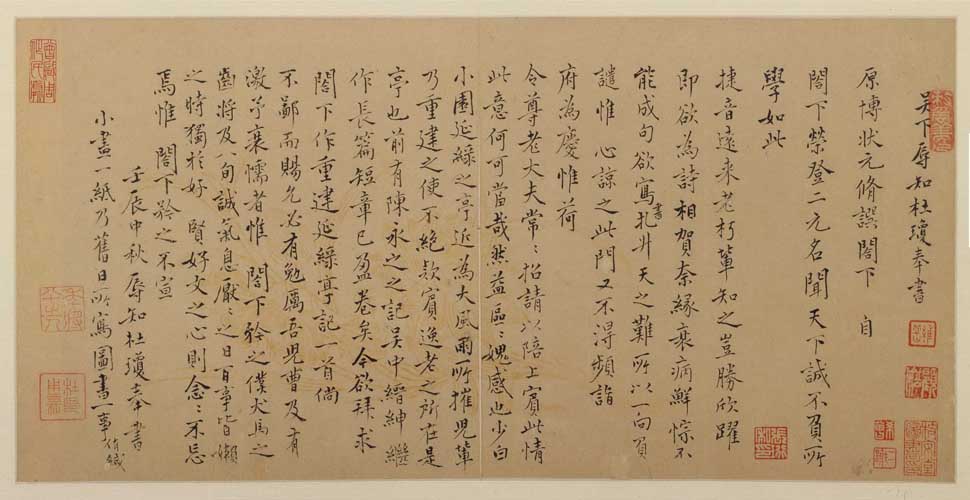 吳下辱知杜瓊奉書
原博狀元脩譔閣下 自
閤下榮登二元名聞天下誠不負所
學如此
捷音遠來老朽輩知之豈勝欣躍
即欲為詩相賀奈緣衰病鮮悰不
能成句欲寫書扎升天之難所以一向負
譴惟 心諒之此門又不得頻詣
府為慶惟荷
令尊老大夫常〻招請以陪上賓此情
此意何可當哉然益區〻媿感也少白
小園延綠之亭近為大風雨所摧児輩
乃重建之使不絕欵賓逸老之所在是
亭也前有陳永之之記吳中縉紳繼
作長篇短章已盈卷矣今欲拜求
閤下作重建延綠亭記一首倘
不鄙而賜允必有勉厲吾児曹及有
激乎衰懦者惟 閤下矜之僕犬馬之
齒將及八旬誠氣息厭〻之日百事皆嬾
之時獨於好 賢好文之心則念〻不忘
焉惟 閤下矜之不宣
壬辰中秋辱知杜瓊奉書
小畫一紙乃舊日所寫圖書一事